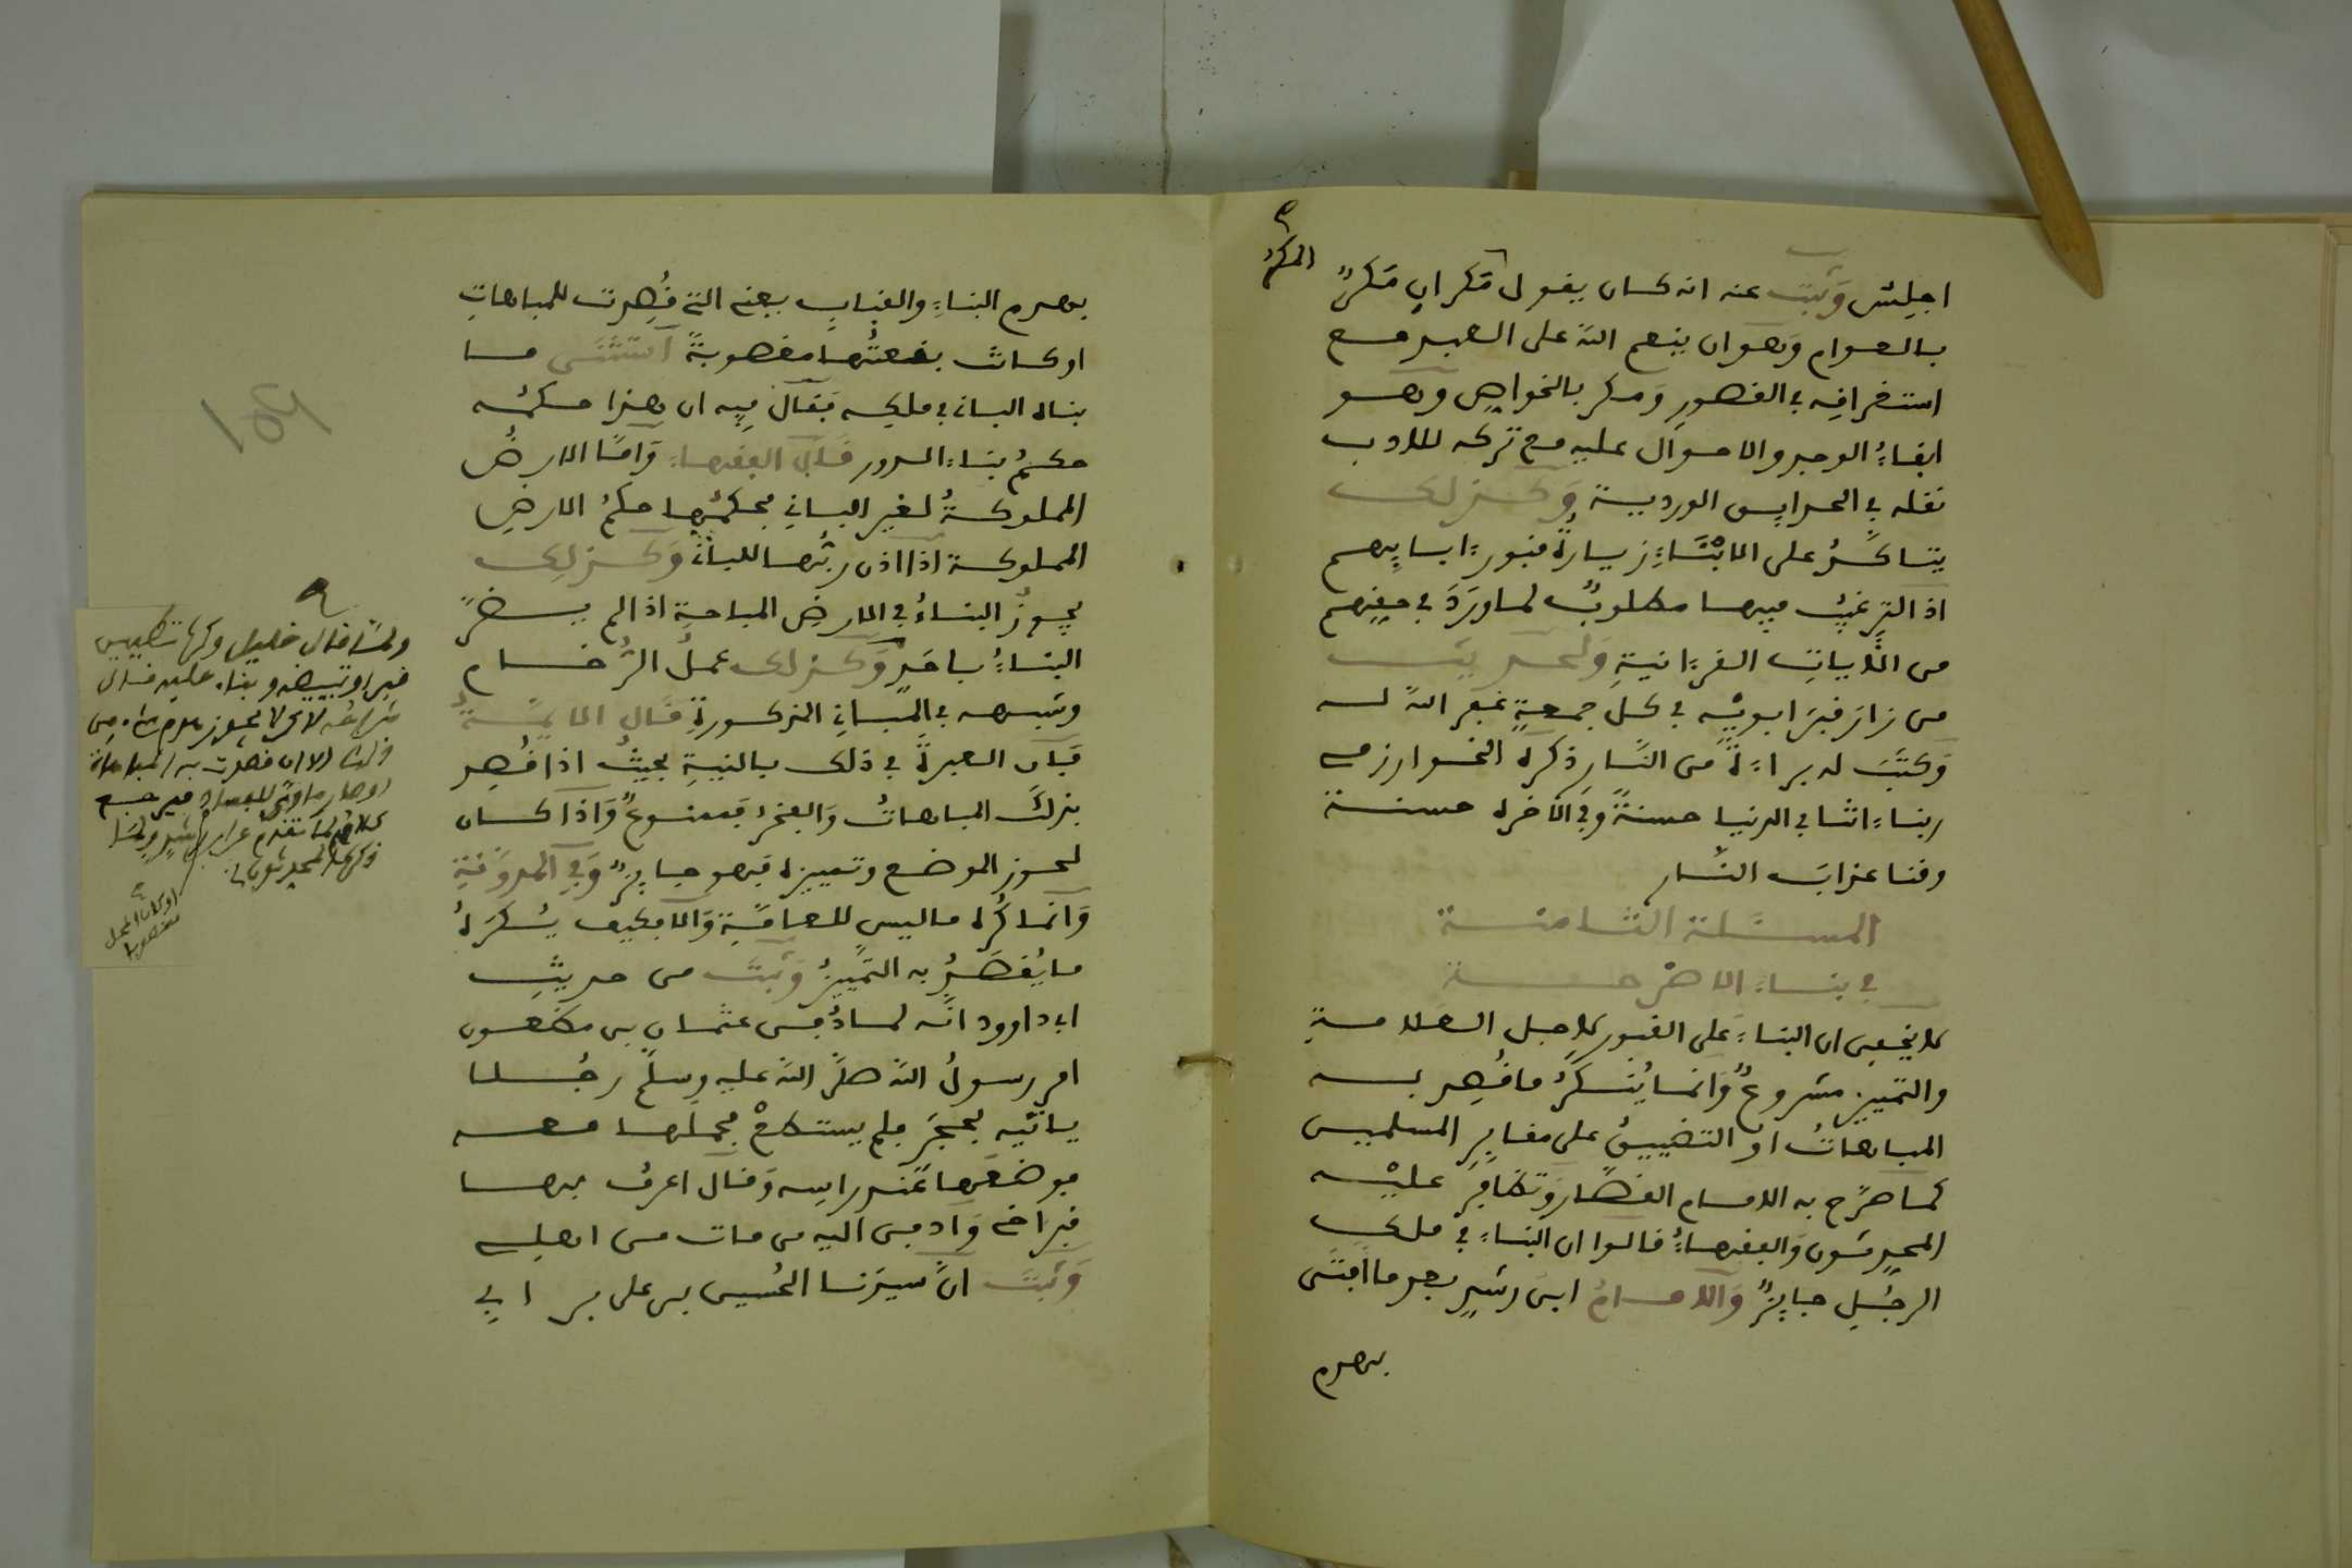 المكر
اجلِسْ وَثبت عنه انه كان يقول مَكرانِ مَكرٌ
بالعوام وَهو ان ينعم اللهُ على العبد مع
استغراقِه في القصورِ وَمكر بالخواصِ وهو
ابقاءُ الوجدِ والاحوال عليه مع تركه للادب
نقله في العرايس الوردية وَكذلك
يتأكّدُ على الابْنَاءِ زيارةُ قبورِ ءابايِهم
اذ الترغيبُ فيها مطلوبٌ لما وَرَدَ في حقِهم
من الأَيات القرءانية وَلحديث
من زارَ قبرَ ابويْه في كلِ جمعةٍ غفر اللهُ له
وَكتَبَ له براءةً من النَّار ذكره الخوارزمي
ربناءاتنا في الدنيا حسنةً وفي الأخرة حسنة
وقنا عذابَ النَّار
المسئلة الثامنة
في بناء الاضرحة
لا يخفى ان البناءَ على القبور لاجل العلامةِ
والتمييزِ مشروعٌ وَانما يُنكَرُ ما قُصِد به
المباهاتُ او التضييقُ على مقابرِ المسلمين
كما صرّح به الامام القصّار وَتظافرَ عليْه
المحدِثون وَالفقهاءُ قالوا ان البناءَ في ملك
الرجُلِ جايزٌ وَالامامُ ابنَ رشدٍ بعدما افتَى
بهدم
بهدم البناءِ والقبابِ يعني التي قُصِدت للمباهاتِ
او كانت بقعتُها مغصوبةً استثنَى ما
بناه الباني في ملكِه فقال فيه ان هذا حكمُه
حكمُ بناءِ الدور قال الفقهاءُ وَامّا الارضُ
المملوكةُ لغير الباني فحكمُها حكمُ الارضِ
المملوكة اذا اذن ربُها للباني وَكذلك
يجوزُ البناءُ في الارضِ المباحةِ اذا لم يضرّ
البناءُ باحَدٍ وَكذلك عملُ الرُخام
وشبهه في المباني المذكورةِ قال الايمّةُ
فان العبرةَ في ذلك بالنيةِ بحيثُ اذا قُصِد
بذلكَ المباهاتُ وَالفخرُ فممنوعٌ وَاذا كان
لحوز الموضع وتمييزه فهو جايزٌ وَفي المدوَّنةِ
وَانما كُره ما ليس للعلامةِ وَالا فكيف يُكرهُ
ما يُقصَدُ به التمْييزُ وَثبتَ من حديثِ
ابي داوود انّه لما دُفن عثمان بن مظعون
امر رسولُ اللهِ صلّى الله عليه وسلّم رجُلا
ياتيه بحجَر فلم يستطعْ فحملها معه
فوضعَها عندَ راسه وَقال اعرفُ بها
قبر اخي وَادفن اليه من مات من اهلي
وَثبتَ انّ سيدَنا الحُسين بن على بن ابي
ولمّا قال خليل وكره تطيين
قبر او تبييضه وبناء عليه قال
لا يجوز هدم شاء من
ذلك الا ان قصدت به المباهاة
او صار ماوى للفساد فيرجع
كلام لما تقدم عن ابن رشد ولمّا
او كان المحل
مغصوبا
١٥٩